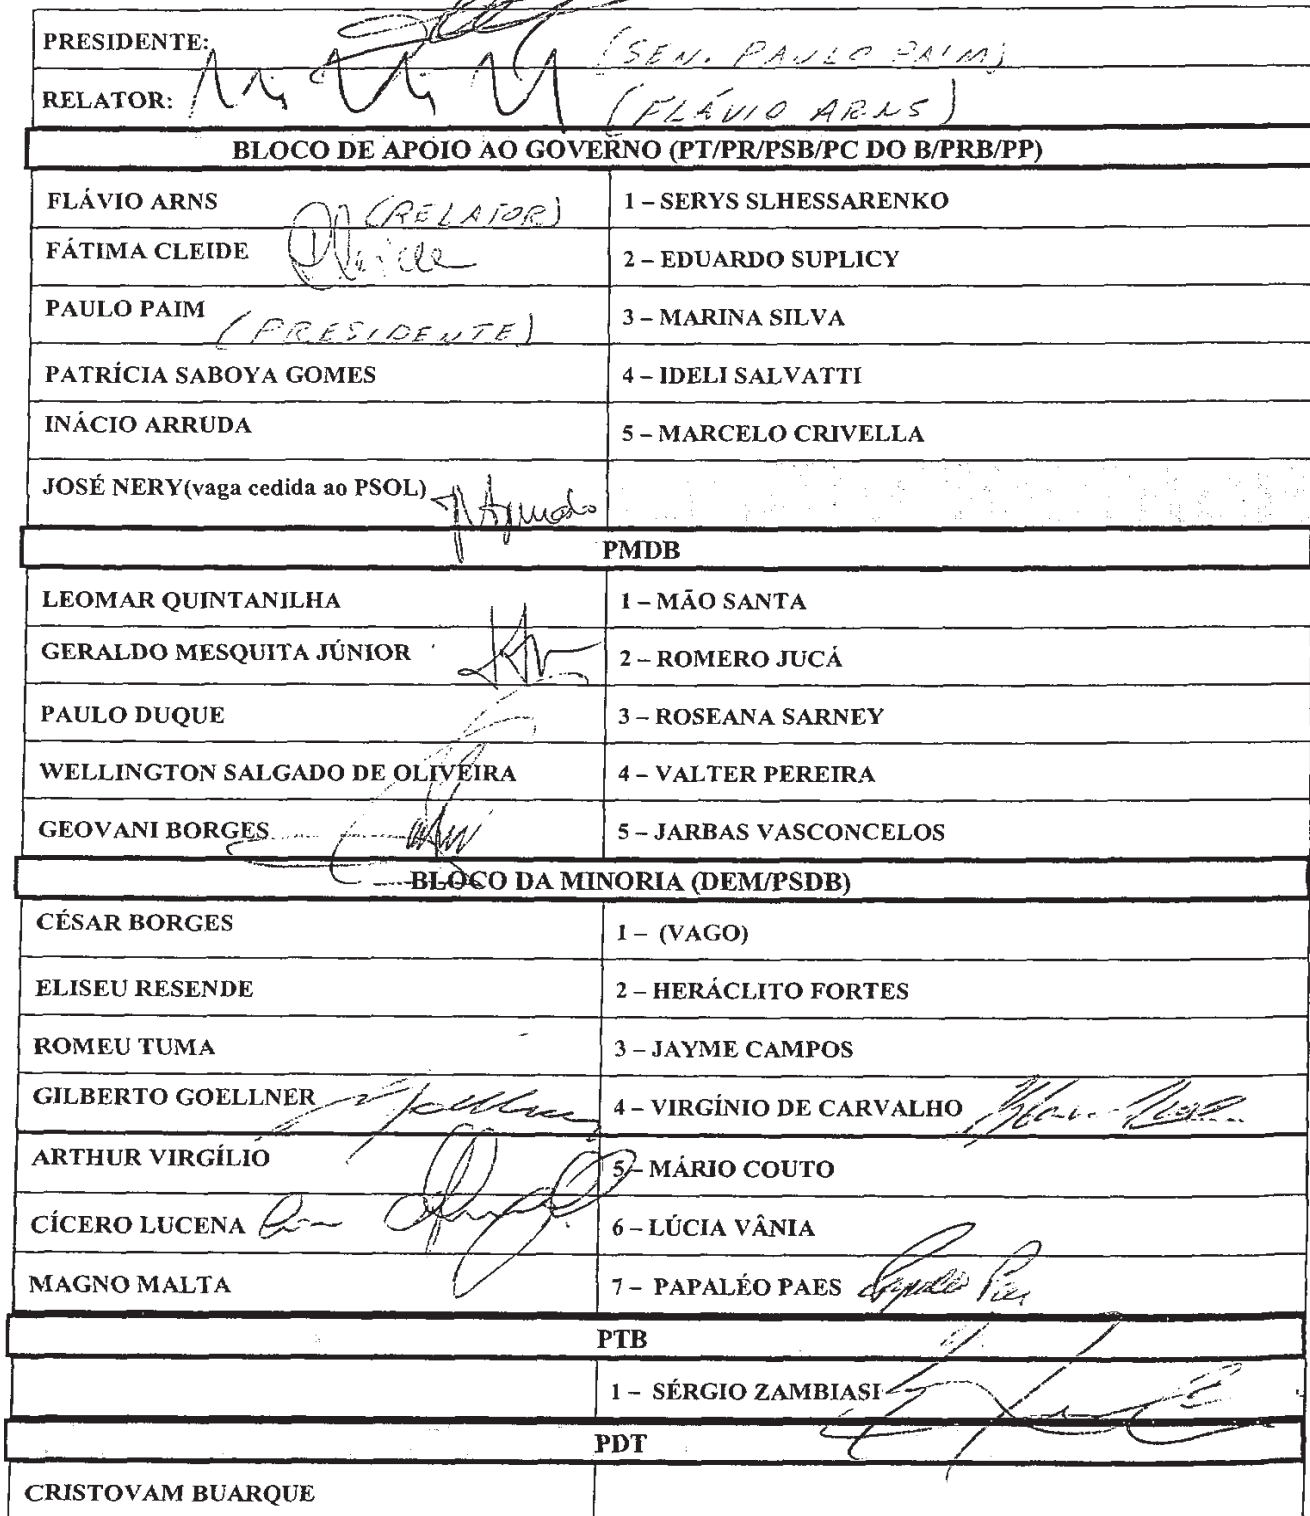 PRESIDENTE: (SEN. PAULO PAIM)
RELATOR: (FLÁVIO ARNS)
BLOCO DE APOIO AO GOVERNO (PT/PR/PSB/PC DO B/PRB/PP)
FLÁVIO ARNS (RELATOR) 1 – SERYS SLHESSARENKO
FÁTIMA CLEIDE 2 – EDUARDO SUPLICY
PAULO PAIM (PRESIDENTE) 3 – MARINA SILVA
PATRÍCIA SABOYA GOMES 4 – IDELI SALVATTI
INÁCIO ARRUDA 5 – MARCELO CRIVELLA
JOSÉ NERY(vaga cedida ao PSOL)
PMDB
LEOMAR QUINTANILHA 1 – MÃO SANTA
GERALDO MESQUITA JÚNIOR 2 – ROMERO JUCÁ
PAULO DUQUE 3 – ROSEANA SARNEY
WELLINGTON SALGADO DE OLIVEIRA 4 – VALTER PEREIRA
GEOVANI BORGES 5 – JARBAS VASCONCELOS
BLOCO DA MINORIA (DEM/PSDB)
CÉSAR BORGES 1 – (VAGO)
ELISEU RESENDE 2 – HERÁCLITO FORTES
ROMEU TUMA 3 – JAYME CAMPOS
GILBERTO GOELLNER 4 – VIRGÍNIO DE CARVALHO
ARTHUR VIRGÍLIO 5 – MÁRIO COUTO
CÍCERO LUCENA 6 – LÚCIA VÂNIA
MAGNO MALTA 7 – PAPALÉO PAES
PTB
1 – SÉRGIO ZAMBIASI
PDT
CRISTOVAM BUARQUE